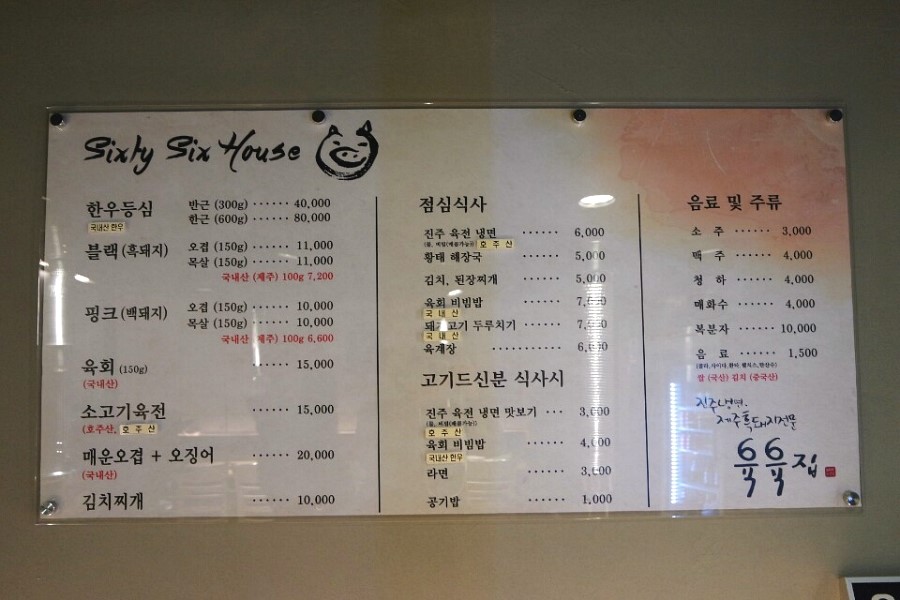 Sixty Six House
한우등심 반근 (300g) ······ 40,000
한근 (600g) ······ 80,000
국내산 한우
블랙 (흑돼지) 오겹 (150g) ······ 11,000
목살 (150g) ······ 11,000
국내산 (제주) 100g 7,200
핑크 (백돼지) 오겹 (150g) ······ 10,000
목살 (150g) ······ 10,000
국내산 (제주) 100g 6,600
육회 (150g) ······ 15,000
(국내산)
소고기육전 ······ 15,000
(호주산, 호 주 산
매운오겹 + 오징어 ······ 20,000
(국내산)
김치찌개 ······ 10,000
점심식사
진주 육전 냉면 ······ 6,000
호 주 산
황태 해장국 ······ 5,000
김치, 된장찌개 ······ 5,000
육회 비빔밥 ······ 7,000
국 내 산
돼지고기 두루치기 ······ 7,000
국 내 산
육개장 ············ 6,000
고기드신분 식사시
진주 육전 냉면 맛보기 ··· 3,000
호 주 산
육회 비빔밥 ······ 4,000
국내산 한우
라면 ······ 3,000
공기밥 ······ 1,000
음료 및 주류
소 주 ······ 3,000
맥 주 ······ 4,000
청 하 ······ 4,000
매화수 ······ 4,000
복분자 ······ 10,000
음 료 ······ 1,500
쌀 (국산) 김치 (중국산)
진주냉면.
제주흑돼지전문
66
육육집